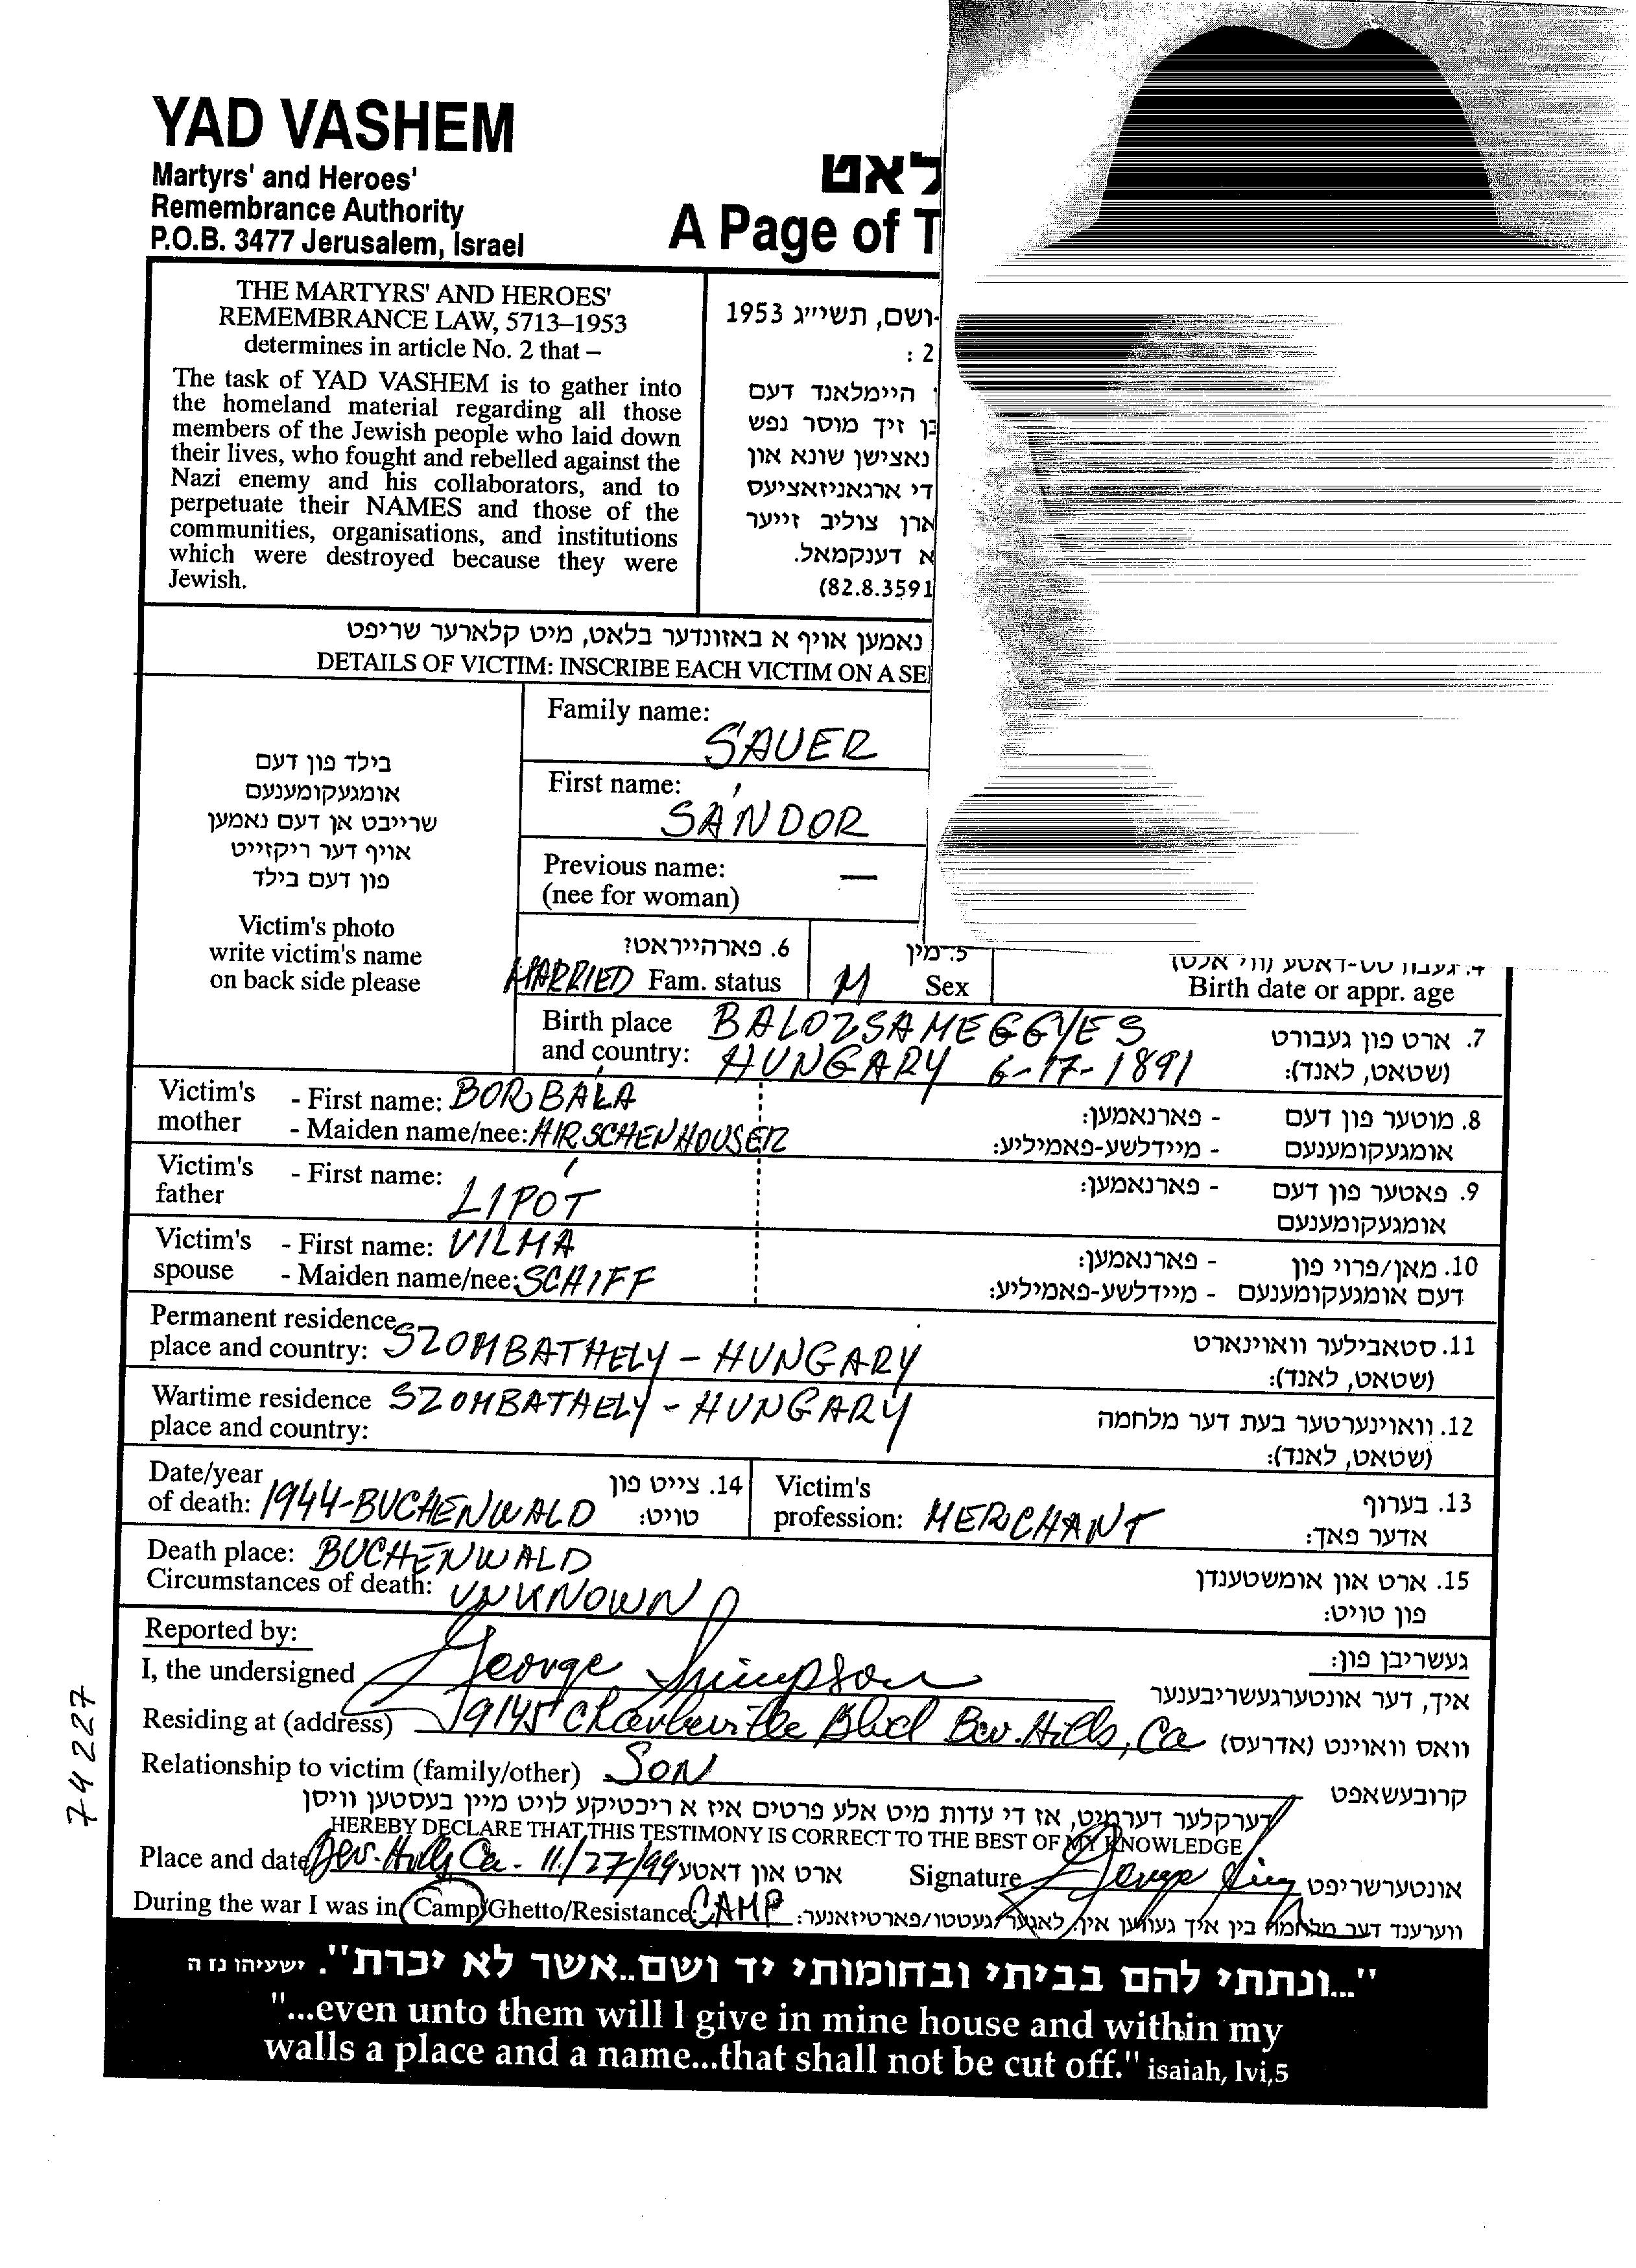 YAD VASHEM
Martyrs' and Heroes'
Remembrance Authority
P.O.B. 3477 Jerusalem, Israel
לאט
A Page of T
THE MARTYRS' AND HEROES'
REMEMBRANCE LAW, 5713–1953
determines in article No. 2 that –
The task of YAD VASHEM is to gather into
the homeland material regarding all those
members of the Jewish people who laid down
their lives, who fought and rebelled against the
Nazi enemy and his collaborators, and to
perpetuate their NAMES and those of the
communities, organisations, and institutions
which were destroyed because they were
Jewish.
ושם, תשי״ג 1953
2 :
היימלאנד דעם
זיך מוסר נפש
נאצישן שונא און
די ארגאניזאציעס
ארן צוליב זייער
א דענקמאל.
(82.8.3591
נאמען אויף א באזונדער בלאט, מיט קלארער שריפט
DETAILS OF VICTIM: INSCRIBE EACH VICTIM ON A SE
בילד פון דעם
אומגעקומענעם
שרייבט אן דעם נאמען
אויף דער ריקזייט
פון דעם בילד
Victim's photo
write victim's name
on back side please
Family name:
SAUER
First name:
SÁNDOR
Previous name: —
(nee for woman)
6. פארהייראט?
MARRIED Fam. status
5. מין
M Sex
Birth date or appr. age
Birth place BALOZSAMEGGYES 7. ארט פון געבורט
and country: HUNGARY 6-17-1891 (שטאט, לאנד):
Victim's - First name: BORBÁLA - פארנאמען: 8. מוטער פון דעם
mother - Maiden name/nee: HIRSCHENHOUSER - מיידלשע-פאמיליע: אומגעקומענעם
Victim's - First name: - פארנאמען: 9. פאטער פון דעם
father LIPÓT אומגעקומענעם
Victim's - First name: VILMA - פארנאמען: 10. מאן/פרוי פון
spouse - Maiden name/nee: SCHIFF - מיידלשע-פאמיליע: דעם אומגעקומענעם
Permanent residence 11. סטאבילער וואוינארט
place and country: SZOMBATHELY - HUNGARY (שטאט, לאנד):
Wartime residence SZOMBATHELY - HUNGARY 12. וואוינערטער בעת דער מלחמה
place and country: (שטאט, לאנד):
Date/year 14. צייט פון
of death: 1944-BUCHENWALD טויט:
Victim's 13. בערוף
profession: MERCHANT אדער פאך:
Death place: BUCHENWALD 15. ארט און אומשטענדן
Circumstances of death: UNKNOWN פון טויט:
Reported by: געשריבן פון:
I, the undersigned George Simpson איך, דער אונטערגעשריבענער
Residing at (address) 9145 Charleville Blvd Bev. Hills, Ca וואס וואוינט (אדרעס)
Relationship to victim (family/other) SON קרובעשאפט
דערקלער דערמיט, אז די עדות מיט אלע פרטים איז א ריכטיקע לויט מיין בעסטען וויסן
HEREBY DECLARE THAT THIS TESTIMONY IS CORRECT TO THE BEST OF MY KNOWLEDGE
Place and date Bev. Hills Ca - 11/27/99 ארט און דאטע Signature George אונטערשריפט
During the war I was in Camp/Ghetto/Resistance: CAMP ווערענד דער מלחמה בין איך געווען אין: לאגער/געטטו/פארטיזאנער:
74227
"...ונתתי להם בביתי ובחומותי יד ושם..אשר לא יכרת". ישעיהו נו ה
"...even unto them will I give in mine house and within my
walls a place and a name...that shall not be cut off." isaiah, lvi,5